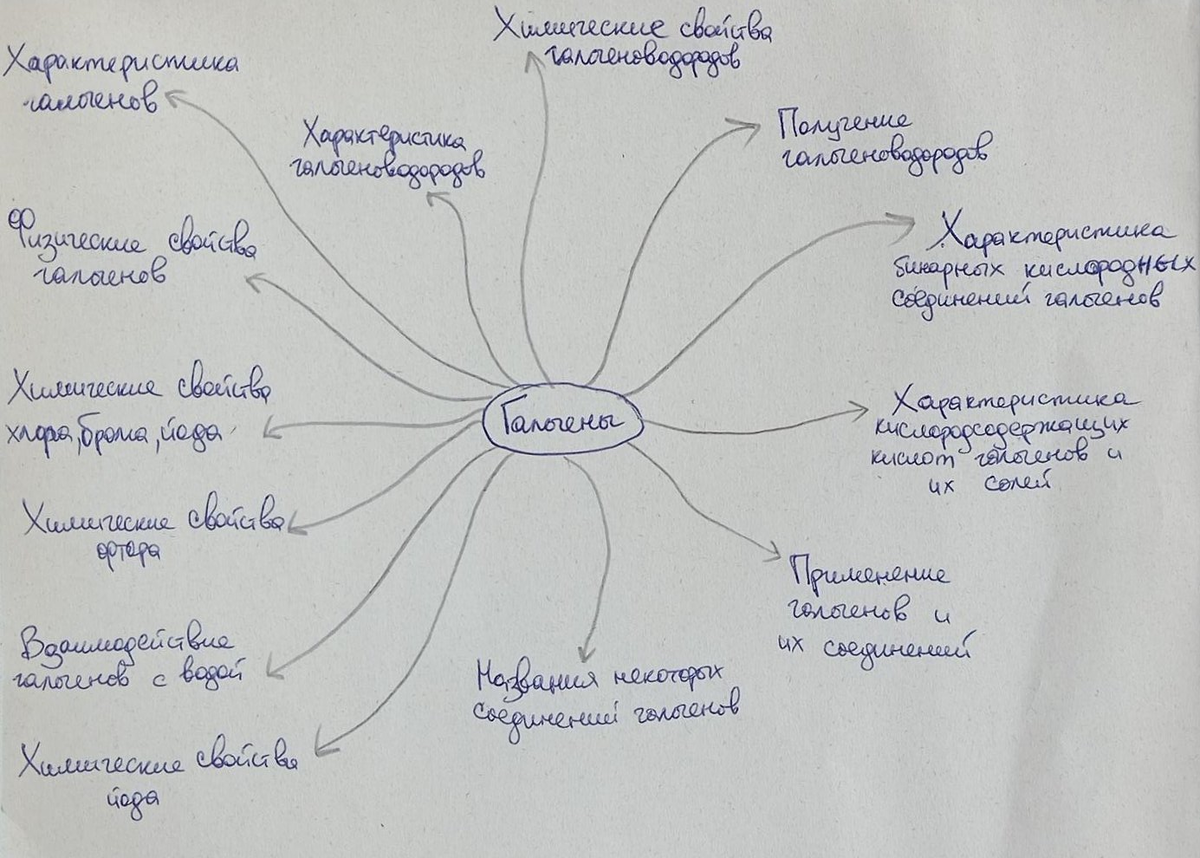 Химические свойства
галогеноводородов
Характеристика
галогенов
Характеристика
галогеноводородов
Получение
галогеноводородов
Физические свойства
галогенов
Характеристика
бинарных кислородных
соединений галогенов
Химические свойства
хлора, брома, йода
Галогены
Характеристика
кислородсодержащих
кислот галогенов и
их солей
Химические свойства
фтора
Применение
галогенов и
их соединений
Взаимодействие
галогенов с водой
Названия некоторых
соединений галогенов
Химические свойства
йода